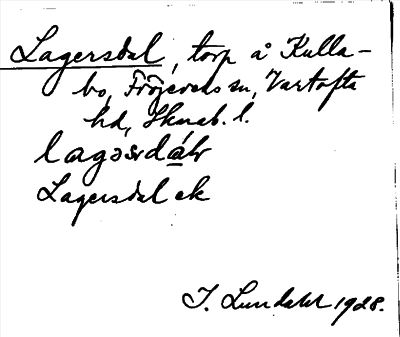 Lagersdal, torp å Kulla-
bo, Fröjereds sn, Vartofta
hd, Skarab. l.
lagǝsdáɫ
Lagersdal ek
J. Lundahl 1928.